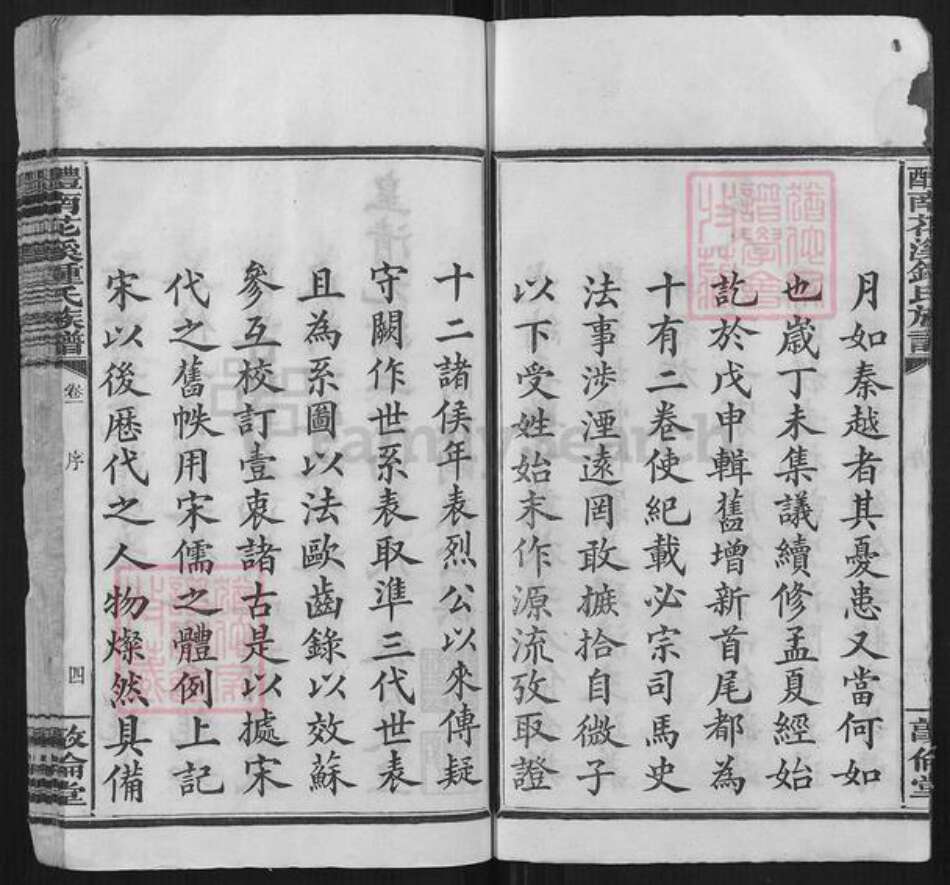 月如秦越者其憂患又當何如
也歲丁未集議續修孟夏經始
訖於戊申輯舊增新首尾都為
十有二卷使紀載必宗司馬史
法事涉湮遠罔敢摭拾自微子
以下受姓始末作源流攷取證
十二諸侯年表烈公以來傳疑
守闕作世系表取準三代世表
且為系圖以法歐齒錄以效蘇
參互校訂壹衷諸古是以據宋
代之舊帙用宋儒之體例上記
宋以後歷代之人物燦然具備
醴南花溪鍾氏族譜
卷一
序
四
敦倫堂
FamilySearch